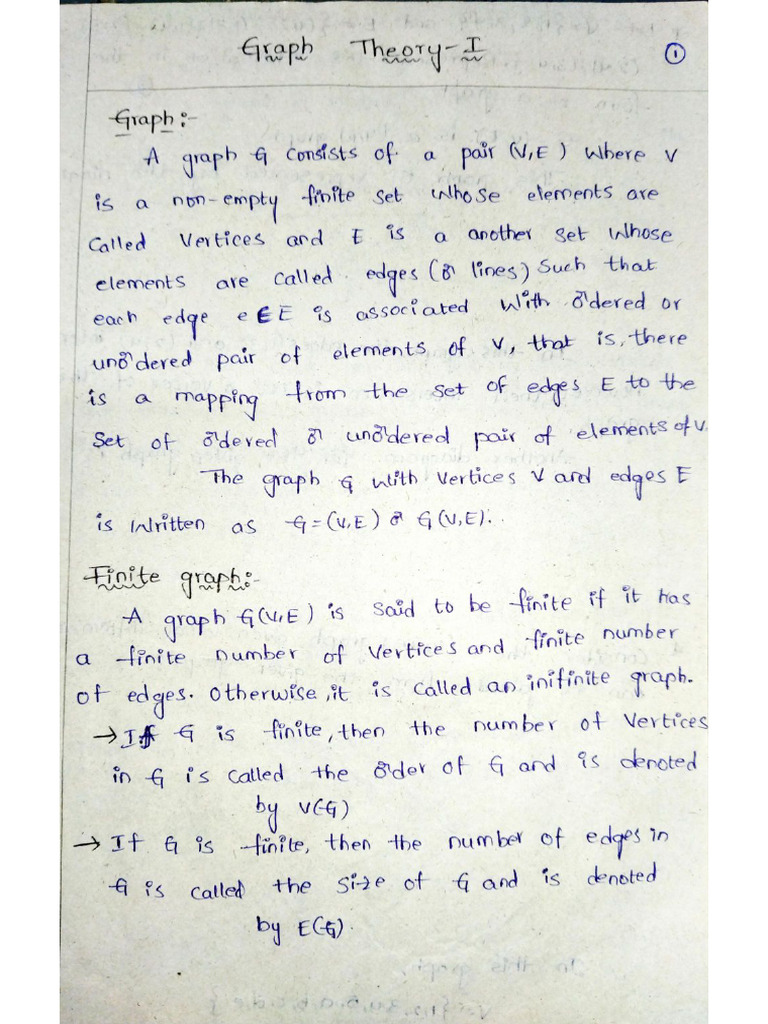 Graph Theory-I
1
Graph:-
A graph G consists of a pair (V,E) where V
is a non-empty finite set whose elements are
called vertices and E is a another set whose
elements are called edges (or lines) such that
each edge e∈E is associated with ordered or
unordered pair of elements of V, that is, there
is a mapping from the set of edges E to the
set of ordered or unordered pair of elements of V.
The graph G with vertices V and edges E
is written as G=(V,E) or G(V,E).
Finite graph:-
A graph G(V,E) is said to be finite if it has
a finite number of vertices and finite number
of edges. Otherwise, it is called an inifinite graph.
→ If G is finite, then the number of vertices
in G is called the order of G and is denoted
by V(G)
→ If G is finite, then the number of edges in
G is called the size of G and is denoted
by E(G).